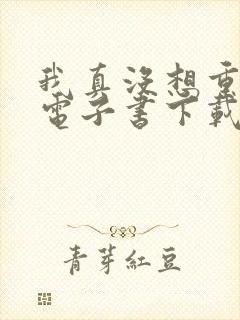 我真没想重
電子書下載
青芽紅豆